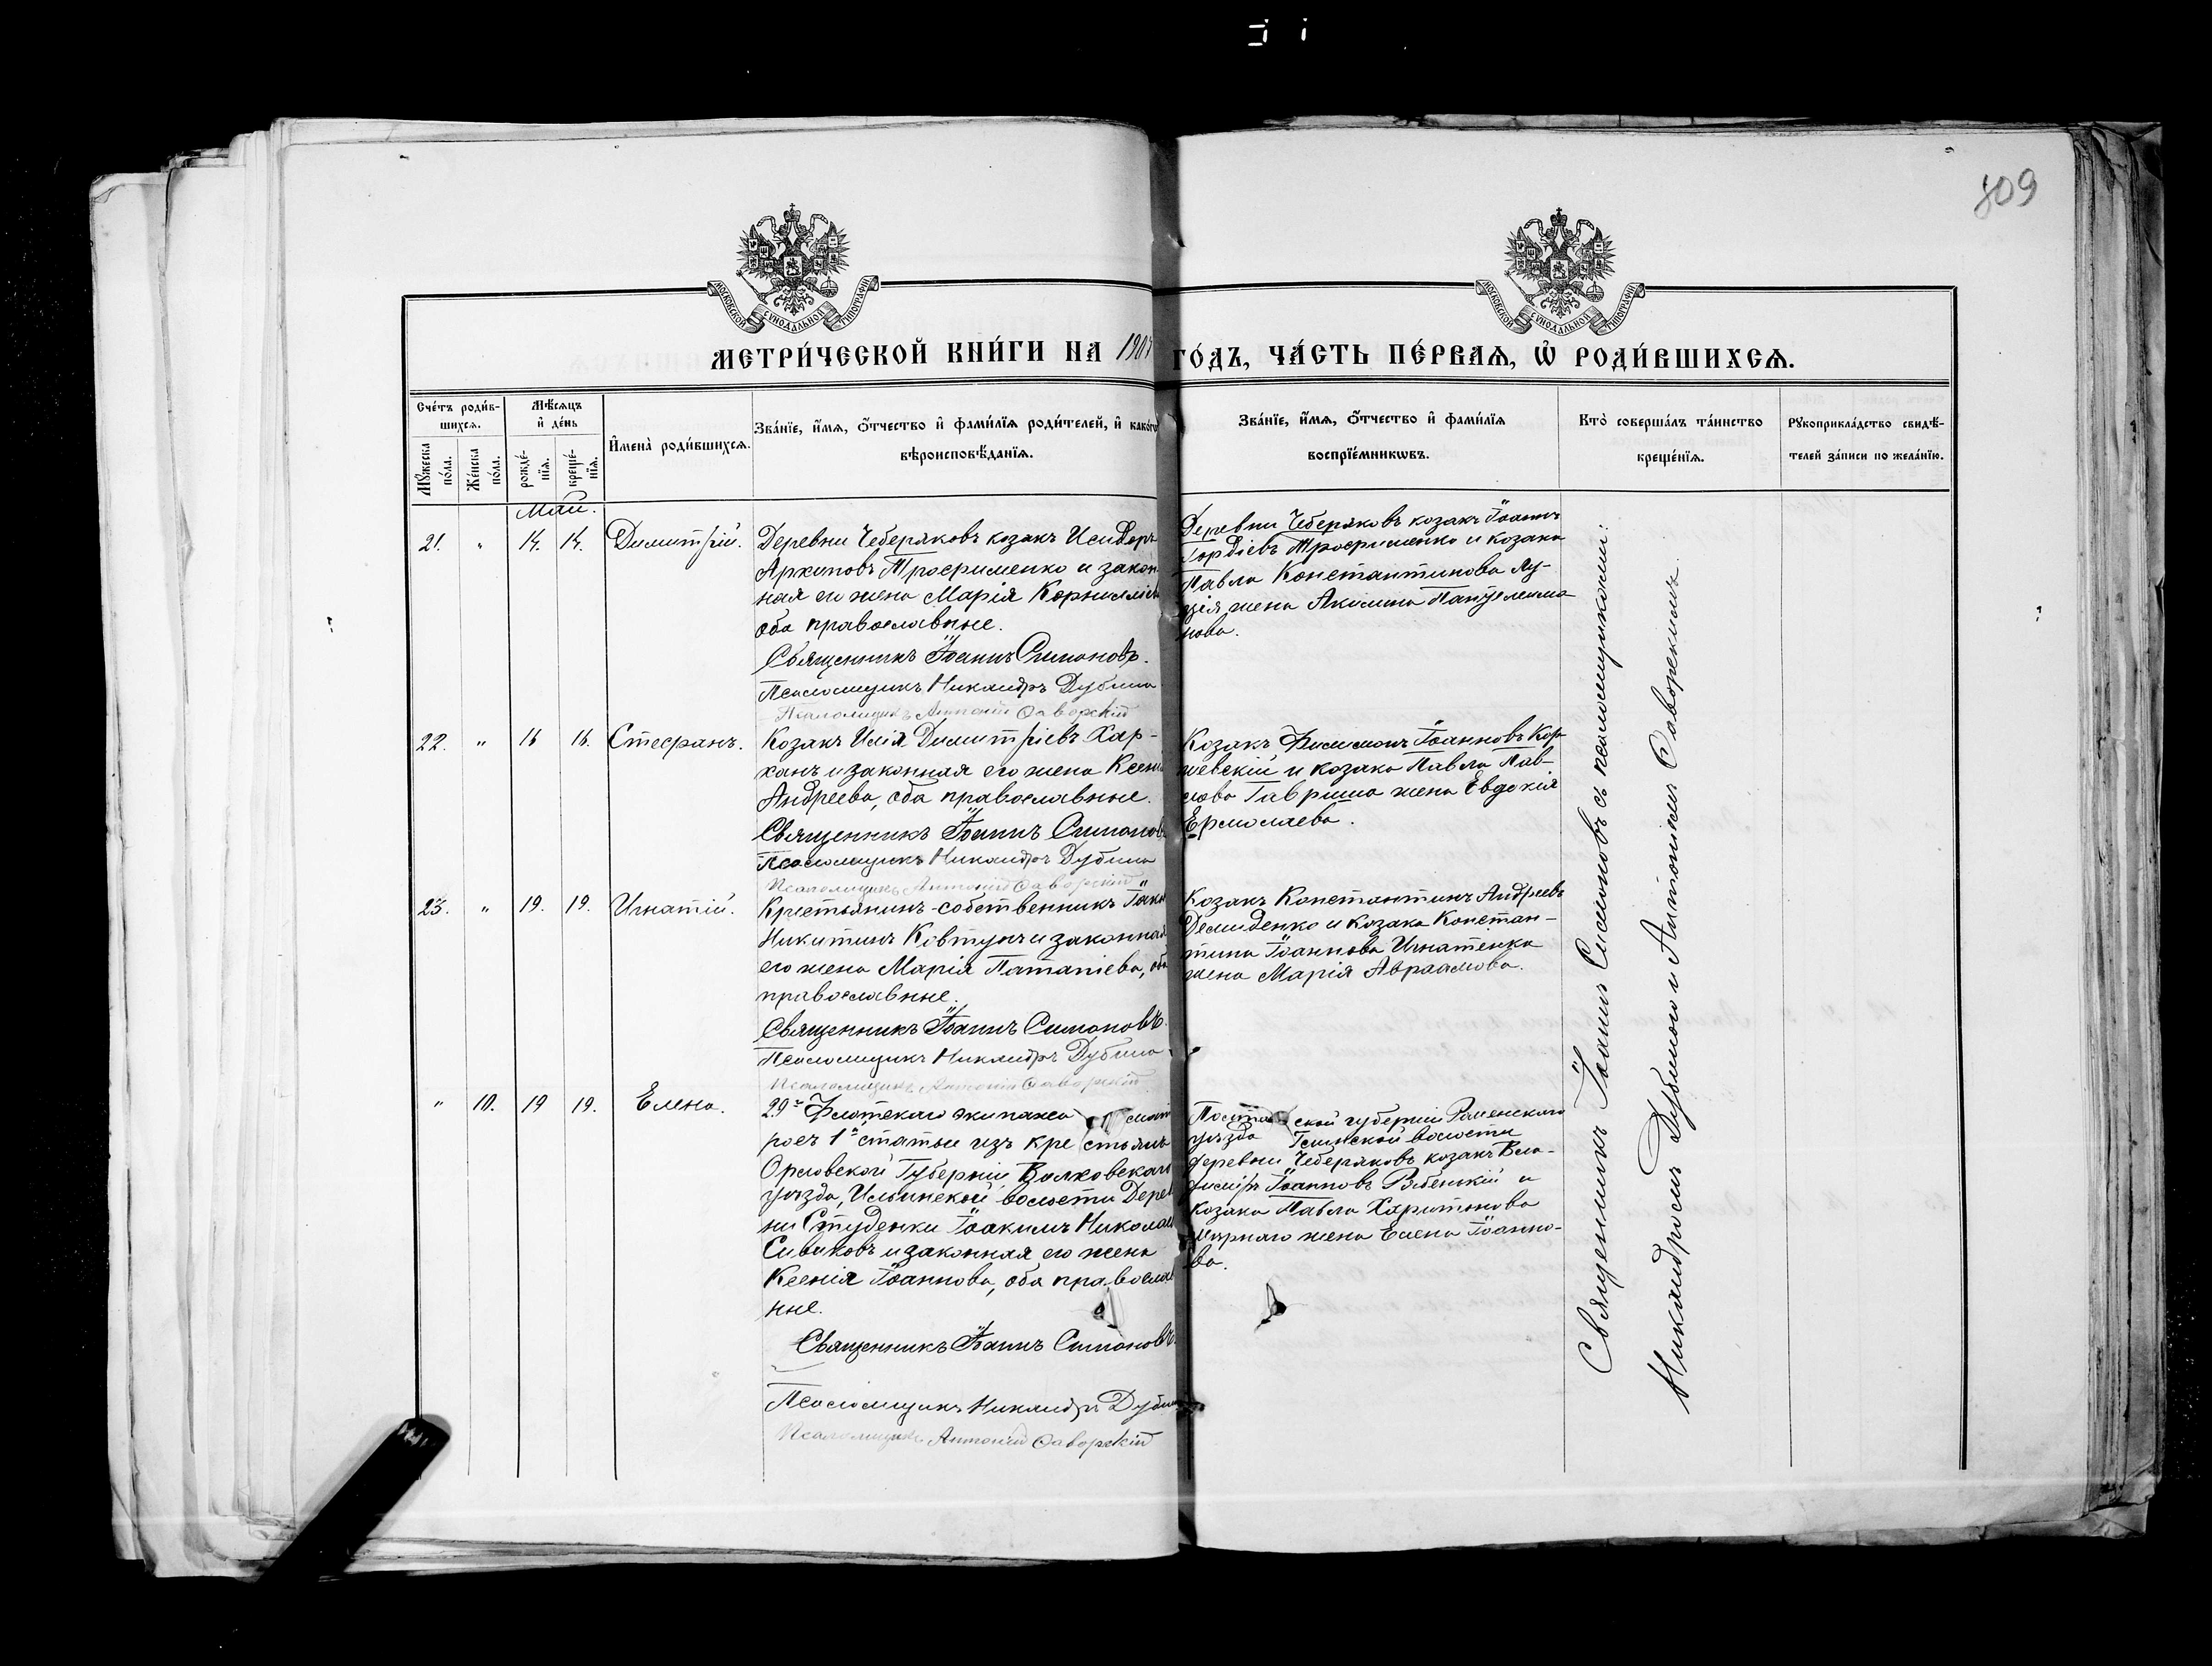 809
МОСКОВСКОЙ СѴНОДАЛЬНОЙ ТИПОГРАФІИ
МОСКОВСКОЙ СѴНОДАЛЬНОЙ ТИПОГРАФІИ
МЕТРИ́ЧЕСКОЙ КНИ́ГИ НА 190
ГО́ДЪ, ЧА́СТЬ ПЕ́РВАѦ, Ѡ҆ РОДИ́ВШИХСѦ.
Сче́тъ роди́в-
шихсѧ.
Мꙋжеска по́ла.
Же́нска по́ла.
Мѣ́сѧцъ
и҆ де́нь
рожде́-
нїѧ.
креще́-
нїѧ.
И҆мена̀ роди́вшихсѧ.
Зва́нїе, и҆́мѧ, ѻ҆́тчество и҆ фами́лїѧ роди́телей, и҆ како́гѡ
вѣроисповѣ́данїѧ.
Зва́нїе, и҆́мѧ, ѻ҆́тчество и҆ фами́лїѧ
воспрїе́мникѡвъ.
Кто̀ соверша́лъ та́инство
креще́нїѧ.
Рꙋкоприкла́дство свидѣ́-
телей за́писи по жела́нїю.
Май.
21. " 14. 14. Димитрій.
Деревни Чеберяковъ козакъ Исидоръ
Архиповъ Трофименко и закон
ная его жена Марія Корниліев
оба православные.
Священникъ Іоаннъ Симоновъ.
Псаломщикъ Никандръ Дубина
Псаломщикъ Антоній Фаворскій
Деревни Чеберяковъ козакъ Іоаннъ
Гордіевъ Трофименко и козака
Павла Константинова Лу-
ценя жена Акилина Пантелеимо
нова.
22. " 16 16. Стефанъ.
Козакъ Илія Димитріевъ Хар-
ханъ и законная его жена Ксенія
Андреева, оба православные.
Священникъ Іоаннъ Симоновъ
Псаломщикъ Никандръ Дубина
Псаломщикъ Антоній Фаворскій
Козакъ Филимонъ Іоанновъ Кор
жевскій и козака Павла Пав-
лова Гавриша жена Евдокія
Ермолаева.
23. " 19. 19. Игнатій.
Крестьянинъ-собственникъ Іаков
Никитинъ Ковтунъ и законная
его жена Марія Патапіева, оба
православные.
Священникъ Іоаннъ Симоновъ.
Псаломщикъ Никандръ Дубина
Псаломщикъ Антоній Фаворскій
Козакъ Константинъ Андреевъ
Демиденко и козака Констан-
тина Іоаннова Игнатенка
жена Марія Авраамова.
" 10. 19 19. Елена.
29го Флотскаго экипажа мат
росъ 1й статьи изъ крестьянъ
Орловской Губерніи Волховскаго
уѣзда, Ильинской волости Дерев
ни Студенки Іоакимъ Николаев
Сиваковъ и законная его жена
Ксенія Іоаннова, оба православ
ные.
Священникъ Іоаннъ Симоновъ
Псаломщикъ Никандръ Дубина
Псаломщикъ Антоній Фаворскій
Полтавской губерніи Роменскаго
уѣзда Глинской волости
деревни Чеберяковъ козакъ Вла-
димiръ Іоанновъ Рябенькій и
козака Павла Харитонова
жена Елена Іоанно-
ва.
Священникъ Іоаннъ Симоновъ съ псаломщиками:
Никандромъ Дубиною и Антоніемъ Фаворскимъ.